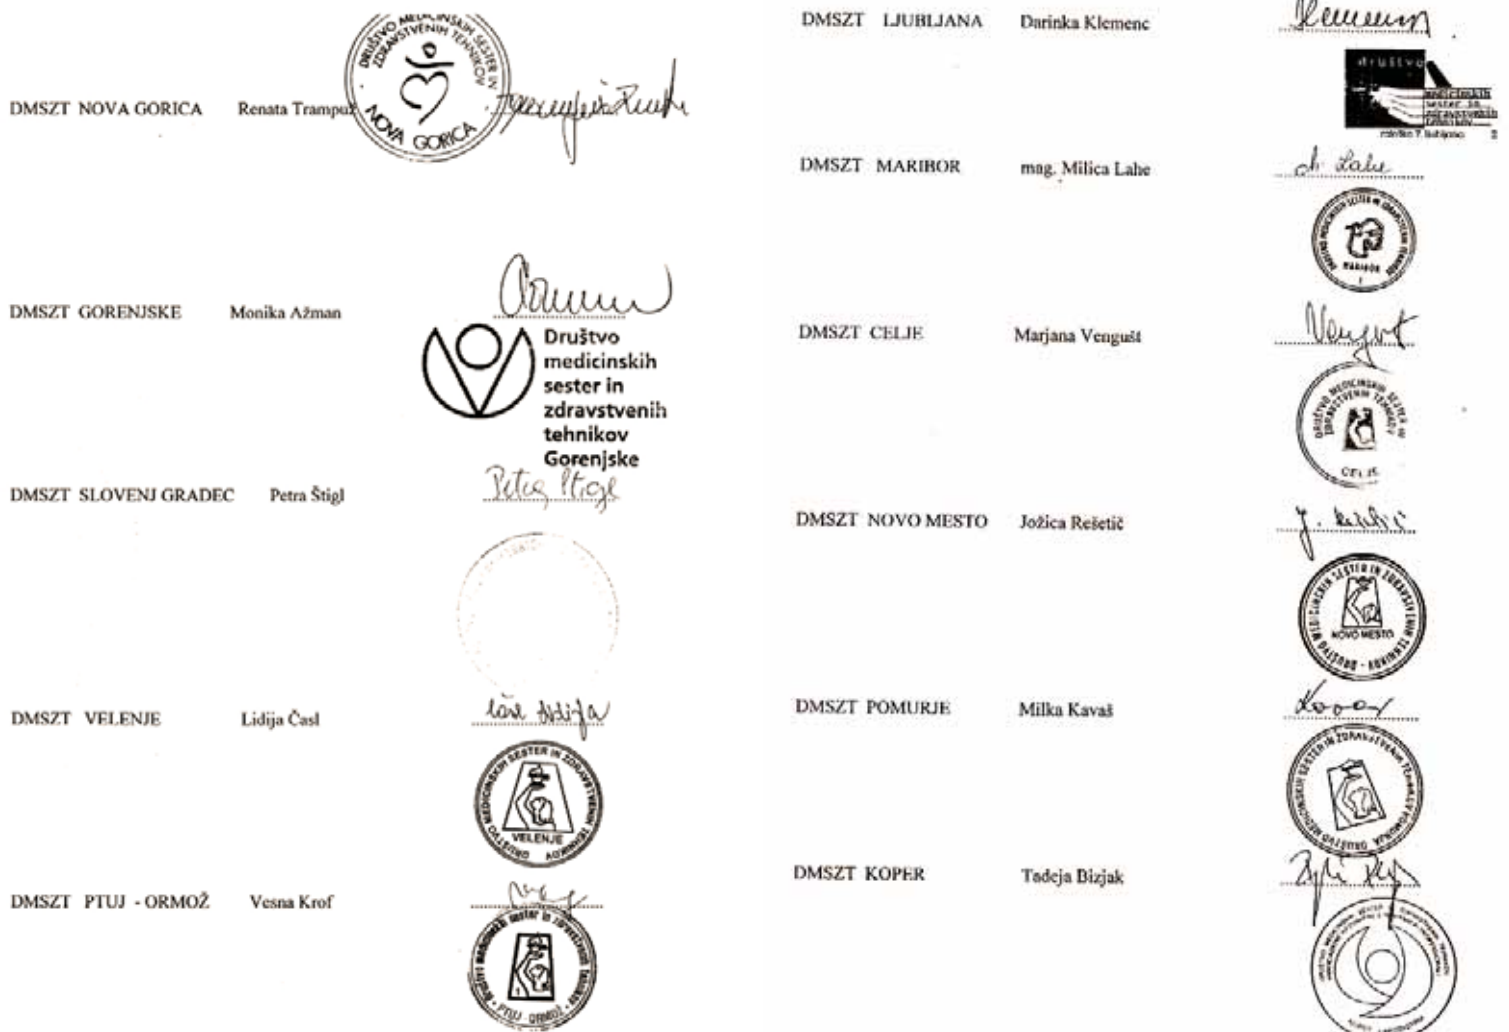 DRUŠTVO MEDICINSKIH SESTER IN
ZDRAVSTVENIH TEHNIKOV
NOVA GORICA
DMSZT NOVA GORICA Renata Trampuž
DMSZT GORENJSKE Monika Ažman
Društvo
medicinskih
sester in
zdravstvenih
tehnikov
Gorenjske
DMSZT SLOVENJ GRADEC Petra Štigl
Petra Štigl
DMSZT VELENJE Lidija Časl
DRUŠTVO MEDICINSKIH SESTER IN ZDRAVSTVENIH TEHNIKOV
VELENJE
DMSZT PTUJ - ORMOŽ Vesna Krof
Društvo medicinskih sester in zdravstvenih tehnikov
PTUJ - ORMOŽ
DMSZT LJUBLJANA Darinka Klemenc
Klemenc
društvo
medicinskih
sester in
zdravstvenih
tehnikov
DMSZT MARIBOR mag. Milica Lahe
Lahe
DRUŠTVO MEDICINSKIH SESTER IN ZDRAVSTVENIH TEHNIKOV
MARIBOR
1
DMSZT CELJE Marjana Vengušt
Vengušt
DRUŠTVO MEDICINSKIH SESTER IN
ZDRAVSTVENIH TEHNIKOV
CELJE
DMSZT NOVO MESTO Jožica Rešetič
DRUŠTVO MEDICINSKIH SESTER IN ZDRAVSTVENIH TEHNIKOV
NOVO MESTO
DMSZT POMURJE Milka Kavaš
DRUŠTVO MEDICINSKIH SESTER IN ZDRAVSTVENIH TEHNIKOV POMURJA
DMSZT KOPER Tadeja Bizjak